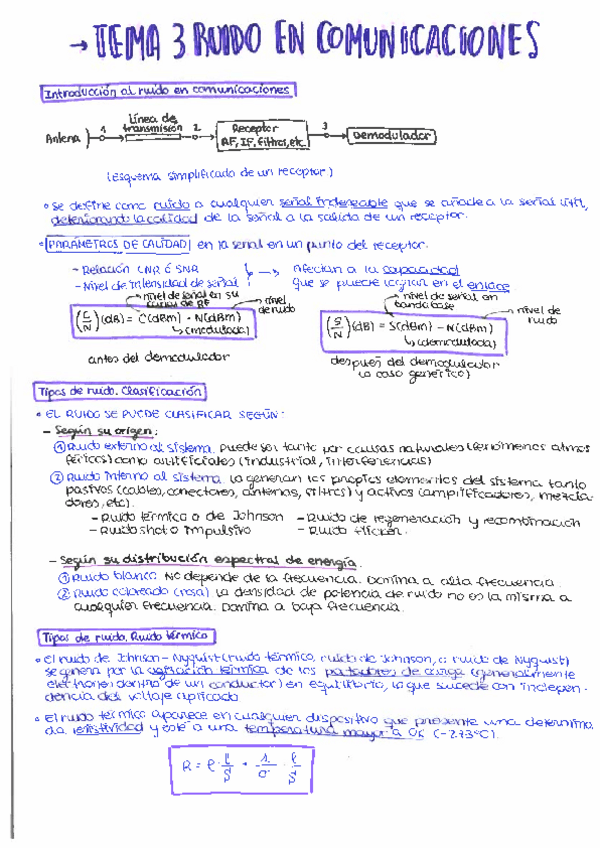 → TEMA 3 RUIDO EN COMUNICACIONES
Introducción al ruido en comunicaciones
Antena 1 Línea de transmisión 2 Receptor RF, IF, filtros, etc. 3 Demodulador
(Esquema simplificado de un receptor)
• Se define como ruido a cualquier señal indeseable que se añade a la señal útil,
deteriorando la calidad de la señal a la salida de un receptor.
• PARÁMETROS DE CALIDAD en la señal en un punto del receptor.
- Relación CNR ó SNR
- Nivel de intensidad de señal
→ Afectan a la capacidad
que se puede lograr en el enlace
nivel de señal en su
nivel de ruido
(C/N)(dB) = C(dBm) - N(dBm)
↳ (modulada)
antes del demodulador
nivel de señal en banda base
nivel de ruido
(S/N)(dB) = S(dBm) - N(dBm)
↳ (demodulada)
después del demodulador
(o caso genérico)
Tipos de ruido. Clasificación
• EL RUIDO SE PUEDE CLASIFICAR SEGÚN:
- Según su origen:
① Ruido externo al sistema. Puede ser tanto por causas naturales (fenómenos atmos
féricos) como artificiales (industrial, interferencias)
② Ruido interno al sistema. Lo generan los propios elementos del sistema tanto
pasivos (cables, conectores, antenas, filtros) y activos (amplificadores, mezcla-
dores, etc).
- Ruido térmico o de Johnson - Ruido de regeneración y recombinación
- Ruido shot o impulsivo - Ruido flicker.
- Según su distribución espectral de energía.
① Ruido blanco. No depende de la frecuencia. Domina a alta frecuencia.
② Ruido coloreado (rosa). La densidad de potencia de ruido no es la misma a
cualquier frecuencia. Domina a baja frecuencia.
Tipos de ruido. Ruido térmico
• El ruido de Johnson-Nyquist (ruido térmico, ruido de Johnson, o ruido de Nyquist)
se genera por la agitación térmica de los portadores de carga (generalmente
electrones dentro de un conductor) en equilibrio, lo que sucede con indepen-
dencia del voltaje aplicado.
• El ruido térmico aparece en cualquier dispositivo que presente una determina
da resistividad y esté a una temperatura mayor a 0K (-273ºC).
R = ρ · l/S = 1/σ · l/S